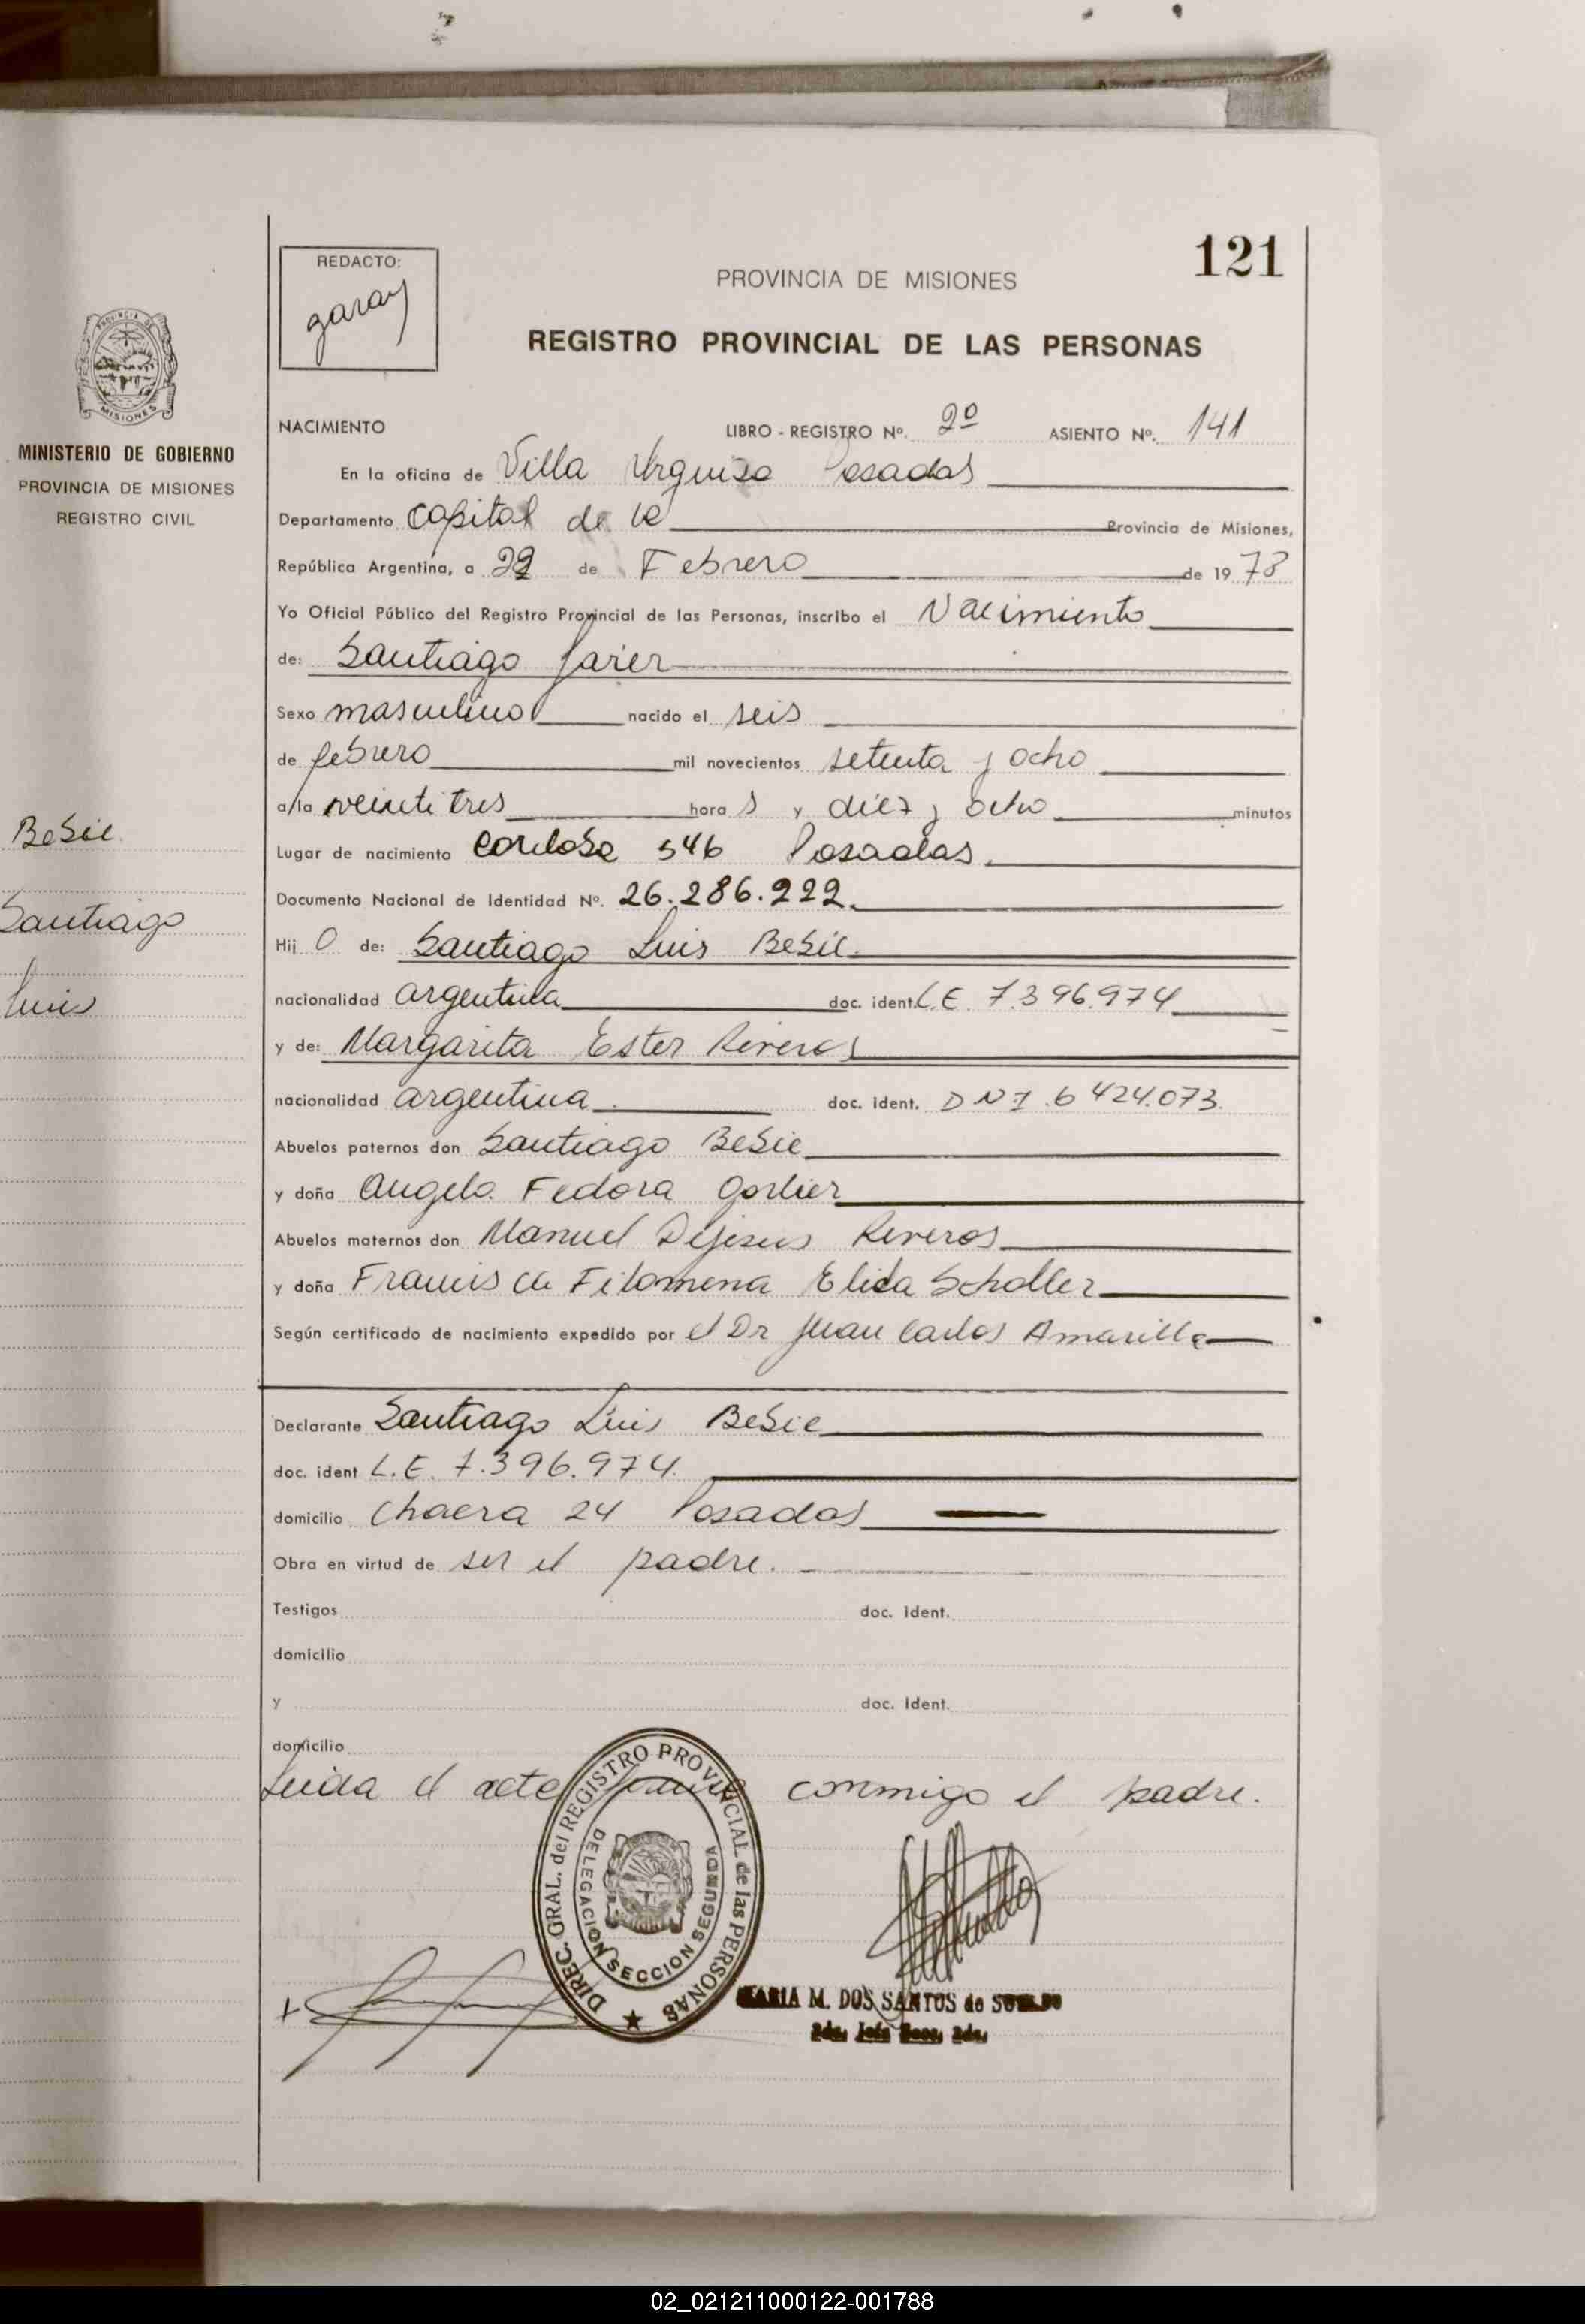 121
REDACTO:
garay
PROVINCIA DE MISIONES
REGISTRO PROVINCIAL DE LAS PERSONAS
PROVINCIA DE
MISIONES
MINISTERIO DE GOBIERNO
PROVINCIA DE MISIONES
REGISTRO CIVIL
Besil
Santiago
Luis
NACIMIENTO LIBRO - REGISTRO Nº. 2º ASIENTO Nº. 141
En la oficina de Villa Urquiza Posadas
Departamento Capital de la Provincia de Misiones,
República Argentina, a 22 de Febrero de 1978
Yo Oficial Público del Registro Provincial de las Personas, inscribo el Nacimiento
de: Santiago Javier
Sexo masculino nacido el seis
de febrero mil novecientos setenta y ocho
a/la veintitres hora s y diez y ocho minutos
Lugar de nacimiento Cordoba 546 Posadas.
Documento Nacional de Identidad Nº. 26.286.222.
Hij o de: Santiago Luis Besil
nacionalidad argentina doc. ident. L.E. 7.396.974
y de: Margarita Ester Riveros
nacionalidad argentina doc. ident. DNI.6424.073.
Abuelos paternos don Santiago Besil
y doña Angela Fedora Gorlier
Abuelos maternos don Manuel Dejesus Riveros
y doña Francisca Filomena Elida Scholler
Según certificado de nacimiento expedido por el Dr Juan Carlos Amarilla
Declarante Santiago Luis Besil
doc. ident L.E. 7.396.974.
domicilio Chacra 24 Posadas
Obra en virtud de ser el padre.
Testigos doc. ident.
domicilio
y doc. ident.
domicilio
Leida el acta firma conmigo el padre.
DIREC. GRAL. del REGISTRO PROVINCIAL de las PERSONAS
DELEGACION SECCION SEGUNDA
MARIA M. DOS SANTOS de
02_021211000122-001788